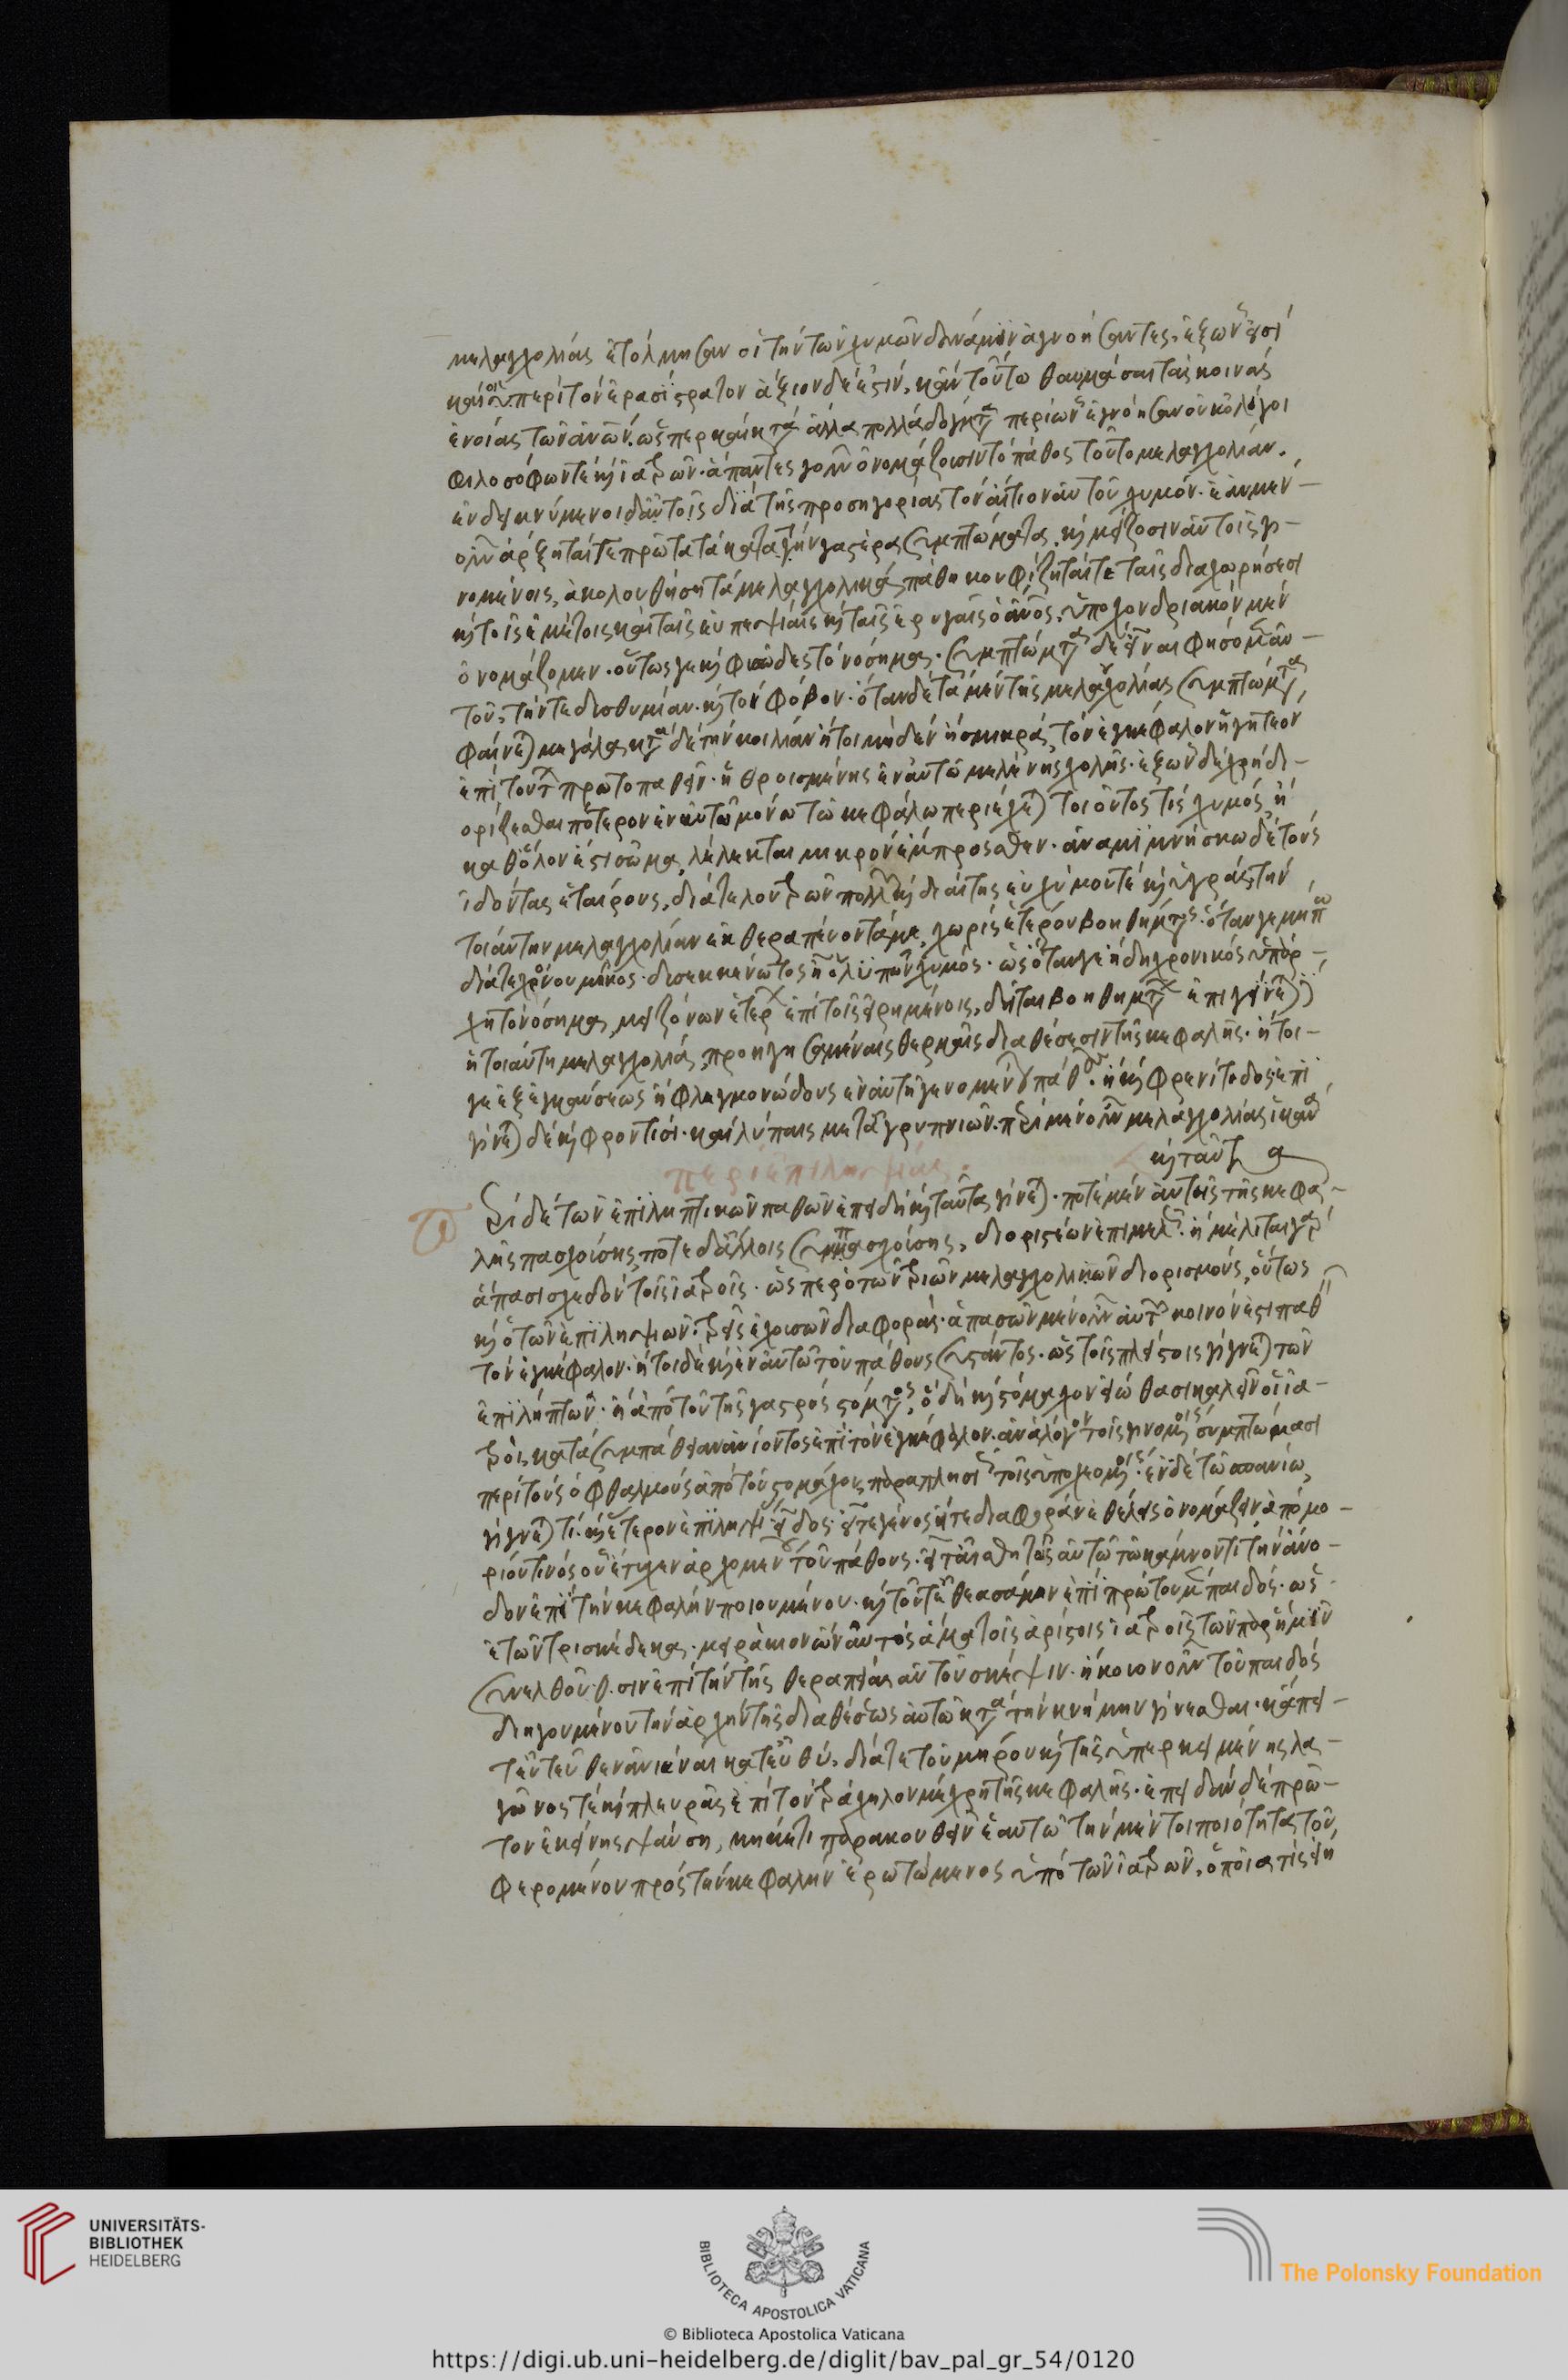 μελαγχολίας ἐτόλμησαν οἱ τὴν τῶν χυμῶν δύναμιν ἀγνοήσαντες. ἐξ ὧν εἰσὶ
καὶ οἱ περὶ τὸν ἐρασίστρατον ἄξιον δέ ἐστιν. κἀν τούτω θαυμάσαι τὰς κοινὰς
ἐνοίας τῶν ἀνων. ὥσπερ καὶ κατὰ ἄλλα πολλὰ δόγματα περὶ ὧν ἠγνόησαν οὐκ ὀλίγοι
φιλοσόφων τὲ καὶ ἰατρῶν. ἅπαντες γοῦν ὀνομάζουσιν τὸ πάθος τοῦτο μελαγχολίαν.
ἐνδεικνύμενοι δαυτοῖς διὰ τῆς προσηγορίας τὸν αἴτιον αὐτοῦ χυμόν. ἐὰν μὲν
οὖν ἄρξηταί τε πρῶτα τὰ κατὰ τὴν γαστέρα συμπτώματα. καὶ μείζοσιν αὐτοῖς γι-
νομένοις, ἀκολουθήση τὰ μελαγχολικὰ πάθη κουφίζηταί τε ταῖς διαχωρήσεσι
καὶ τοῖς ἐμέτοις καὶ ταῖς εὐπεψίαις καὶ ταῖς ἐρυγαῖς ὁ ἄνος. ὑποχονδριακὸν μὲν
ὀνομάζομεν. οὕτως γε καὶ φυσῶδες τὸ νόσημα. συμπτώματα δ' εἶναι φήσομεν αὐ-
τοῦ. τήν τε δυσθυμίαν. καὶ τὸν φόβον. ὅταν δὲ τὰ μὲν τῆς μελαγχολίας συμπτώματα
φαίνεται μεγάλα κατὰ δὲ τὴν κοιλίαν ἤτοι μηδὲν ἢ σμικρὰ, τὸν ἐγκέφαλον ἡγητέον
ἐπὶ τούτων πρωτοπαθεῖν. ἠθροισμένης ἐν αὐτῶ μελαίνης χολῆς. ἐξ ὧν δὲ χρὴ δι-
ορίζεσθαι πότερον ἐν αὐτῶ μόνω τῶ κεφάλω περιέχεται τοιοῦτος τίς χυμὸς, ἢ
καθ' ὅλον ἐστι σῶμα, λέλεκται μικρὸν ἔμπροσθεν. ἀναμιμνήσκω δὲ τοὺς
ἰδόντας ἑταίρους, διά τε λουτρῶν πολλῶν καὶ διαίτης εὐχύμου τὲ καὶ ὑγρᾶς τὴν
τοιαύτην μελαγχολίαν ἐκθεραπεύοντά με, χωρὶς ἑτέρου βοηθήματος. ὅταν γε μήπω
διά τε χρόνου μῆκος. δυσεκκένωτος ἦ ὁ λυπῶν χυμός. ὡς ὅταν γε ἤδη χρονικὸς ὑπάρ-
χη τὸ νόσημα, μειζόνων ἑτέρων ἐπὶ τοῖς εἰρημένοις, δεῖται βοηθημάτων ἐπιγίνεται
ἡ τοιαύτη μελαγχολία, προηγησαμέναις θερμαῖς διαθέσεσιν τῆς κεφαλῆς. ἤτοι
γε ἐξ ἐγκαύσεως ἢ φλεγμονώδους ἐν αὐτῆ γενομένου πάθους. ἢ καὶ φρενίτιδος ἐπι
γίνεται δὲ καὶ φροντίσι. καὶ λύπαις μετ' ἀγρυπνιῶν. περὶ μὲν οὖν μελαγχολίας ἱκανὰ
καὶ ταῦτα
περὶ ἐπιληψίας.
Περὶ δὲ τῶν ἐπιληπτικῶν παθῶν ἐπειδὴ καὶ ταῦτα γίνεται. ποτὲ μὲν αὐτῆς τῆς κεφα-
λῆς πασχούσης, ποτὲ δ' ἄλλοις συμπασχούσης, διοριστέων ἐπιμελῶς. ἠμέληται γὰρ
ἅπασι σχεδὸν τοῖς ἰατροῖς. ὥσπερ ὁ τῶν τριῶν μελαγχολικῶν διορισμοὺς, οὕτως
καὶ ὁ τῶν ἐπιληψιῶν. τρεῖς ἐχουσῶν διαφοράς. ἁπασῶν μὲν οὖν αὐτῶν κοινόν ἐστι παθεῖν
τὸν ἐγκέφαλον. ἤτοι δὲ καὶ ἐν αὐτῶ τοῦ πάθους συστάντος. ὡς τοῖς πλείστοις γίγνεται τῶν
ἐπιλήπτων. ἢ ἀπὸ τοῦ τῆς γαστρὸς στόματος, ὃ δὴ καὶ στόμαχον εἰώθασι καλεῖν οἱ ἰα-
τροὶ. κατὰ συμπάθειαν ἀνιόντος ἐπὶ τὸν ἐγκέφαλον. ἀνάλογον τοῖς γινομένοις συμπτώμασι
περὶ τοὺς ὀφθαλμοὺς ἀπὸ τοῦ στομάχου, παραπλησίως τοῖς ὑποχεομένοις. ἐν δὲ τῶ σπανίω,
γίγνεταί τι. καὶ ἕτερον ἐπιληψίας εἶδος. εἴτε γένος εἴτε διαφορὰν ἐθέλεις ὀνομάζειν ἀπὸ μο-
ρίου τινὸς οὗ ἔτυχεν ἀρχομένου τοῦ πάθους. εἶτ' αἰσθητῶς αὐτῶ τῶ κάμνοντι τὴν ἄνο-
δον ἐπὶ τὴν κεφαλὴν ποιουμένου. καὶ τοῦτ' ἐθεασάμην ἐπὶ πρώτου μὲν παιδός. ὡς
ἐτῶν τρισκαίδεκα. μειράκιον ὢν αὐτὸς ἅμα τοῖς ἀρίστοις ἰατροῖς τῶν παρ' ἡμῖν
συνελθοῦσιν ἐπὶ τὴν τῆς θεραπείας αὐτοῦ σκέψιν. ἤκουον οὖν τοῦ παιδὸς
διηγουμένου τὴν ἀρχὴν τῆς διαθέσεως αὐτῶ κατὰ τὴν κνήμην γίνεσθαι. κἄπει-
τ' ἐντεῦθεν ἀνιέναι κατ' εὐθὺ. διά τε τοῦ μηροῦ καὶ τῆς ὑπερκειμένης λα-
γῶνος τὲ καὶ πλευρᾶς ἐπὶ τὸν τράχηλον μέχρι τῆς κεφαλῆς. ἐπειδὰν δὲ πρῶ-
τον ἐκείνης ψαύση, μηκέτι παρακολουθεῖν ἑαυτῶ τὴν μέντοι ποιότητα τοῦ
φερομένου πρὸς τὴν κεφαλὴν ἐρωτώμενος ὑπὸ τῶν ἰατρῶν. ὁποία τίς εἴη
UNIVERSITÄTS-
BIBLIOTHEK
HEIDELBERG
BIBLIOTECA APOSTOLICA VATICANA
The Polonsky Foundation
© Biblioteca Apostolica Vaticana
https://digi.ub.uni-heidelberg.de/diglit/bav_pal_gr_54/0120